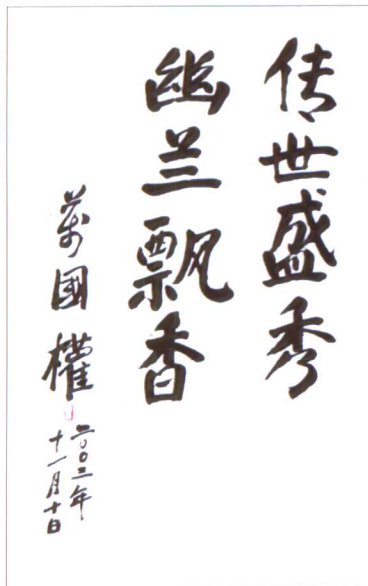 传世盛秀
幽兰飘香
萬國權
二〇〇二年
十一月十日